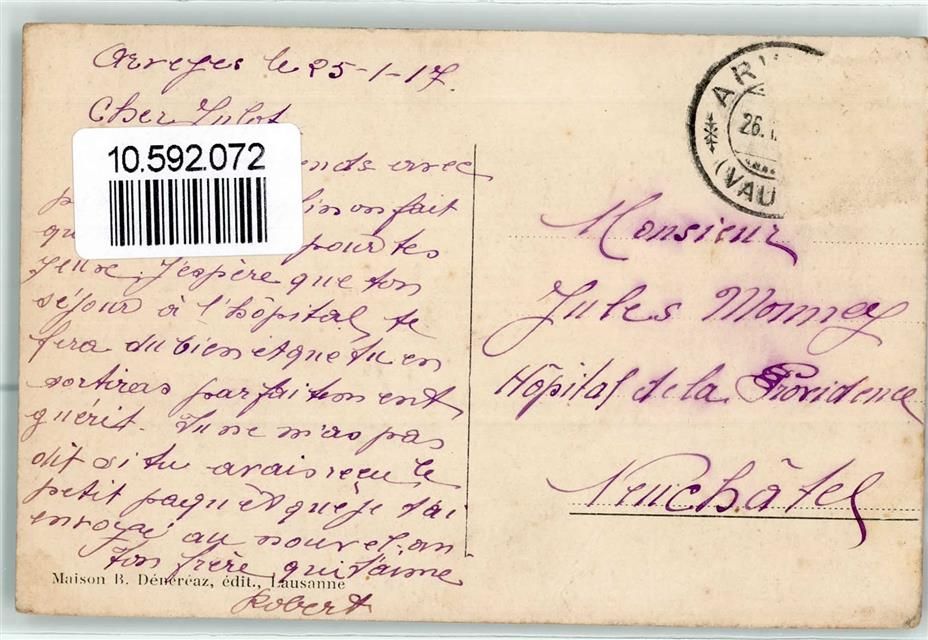 le 25-1-17.
Cher Julot
10.592.072
avec
on fait
pour tes
J'espère que ton
séjour à l'hôpital, te
fera du bien et que tu en
sortiras parfaitement
guérit. Tu ne m'as pas
dit si tu avais reçu le
petit paquet que je t'ai
envoyé au nouvel-an
Ton frère qui t'aime
Robert
Maison B. Dénéréaz, édit., Lausanne
26.
(VAU
Monsieur
Jules Monney
Hôpital de la Providence
Neuchâtel